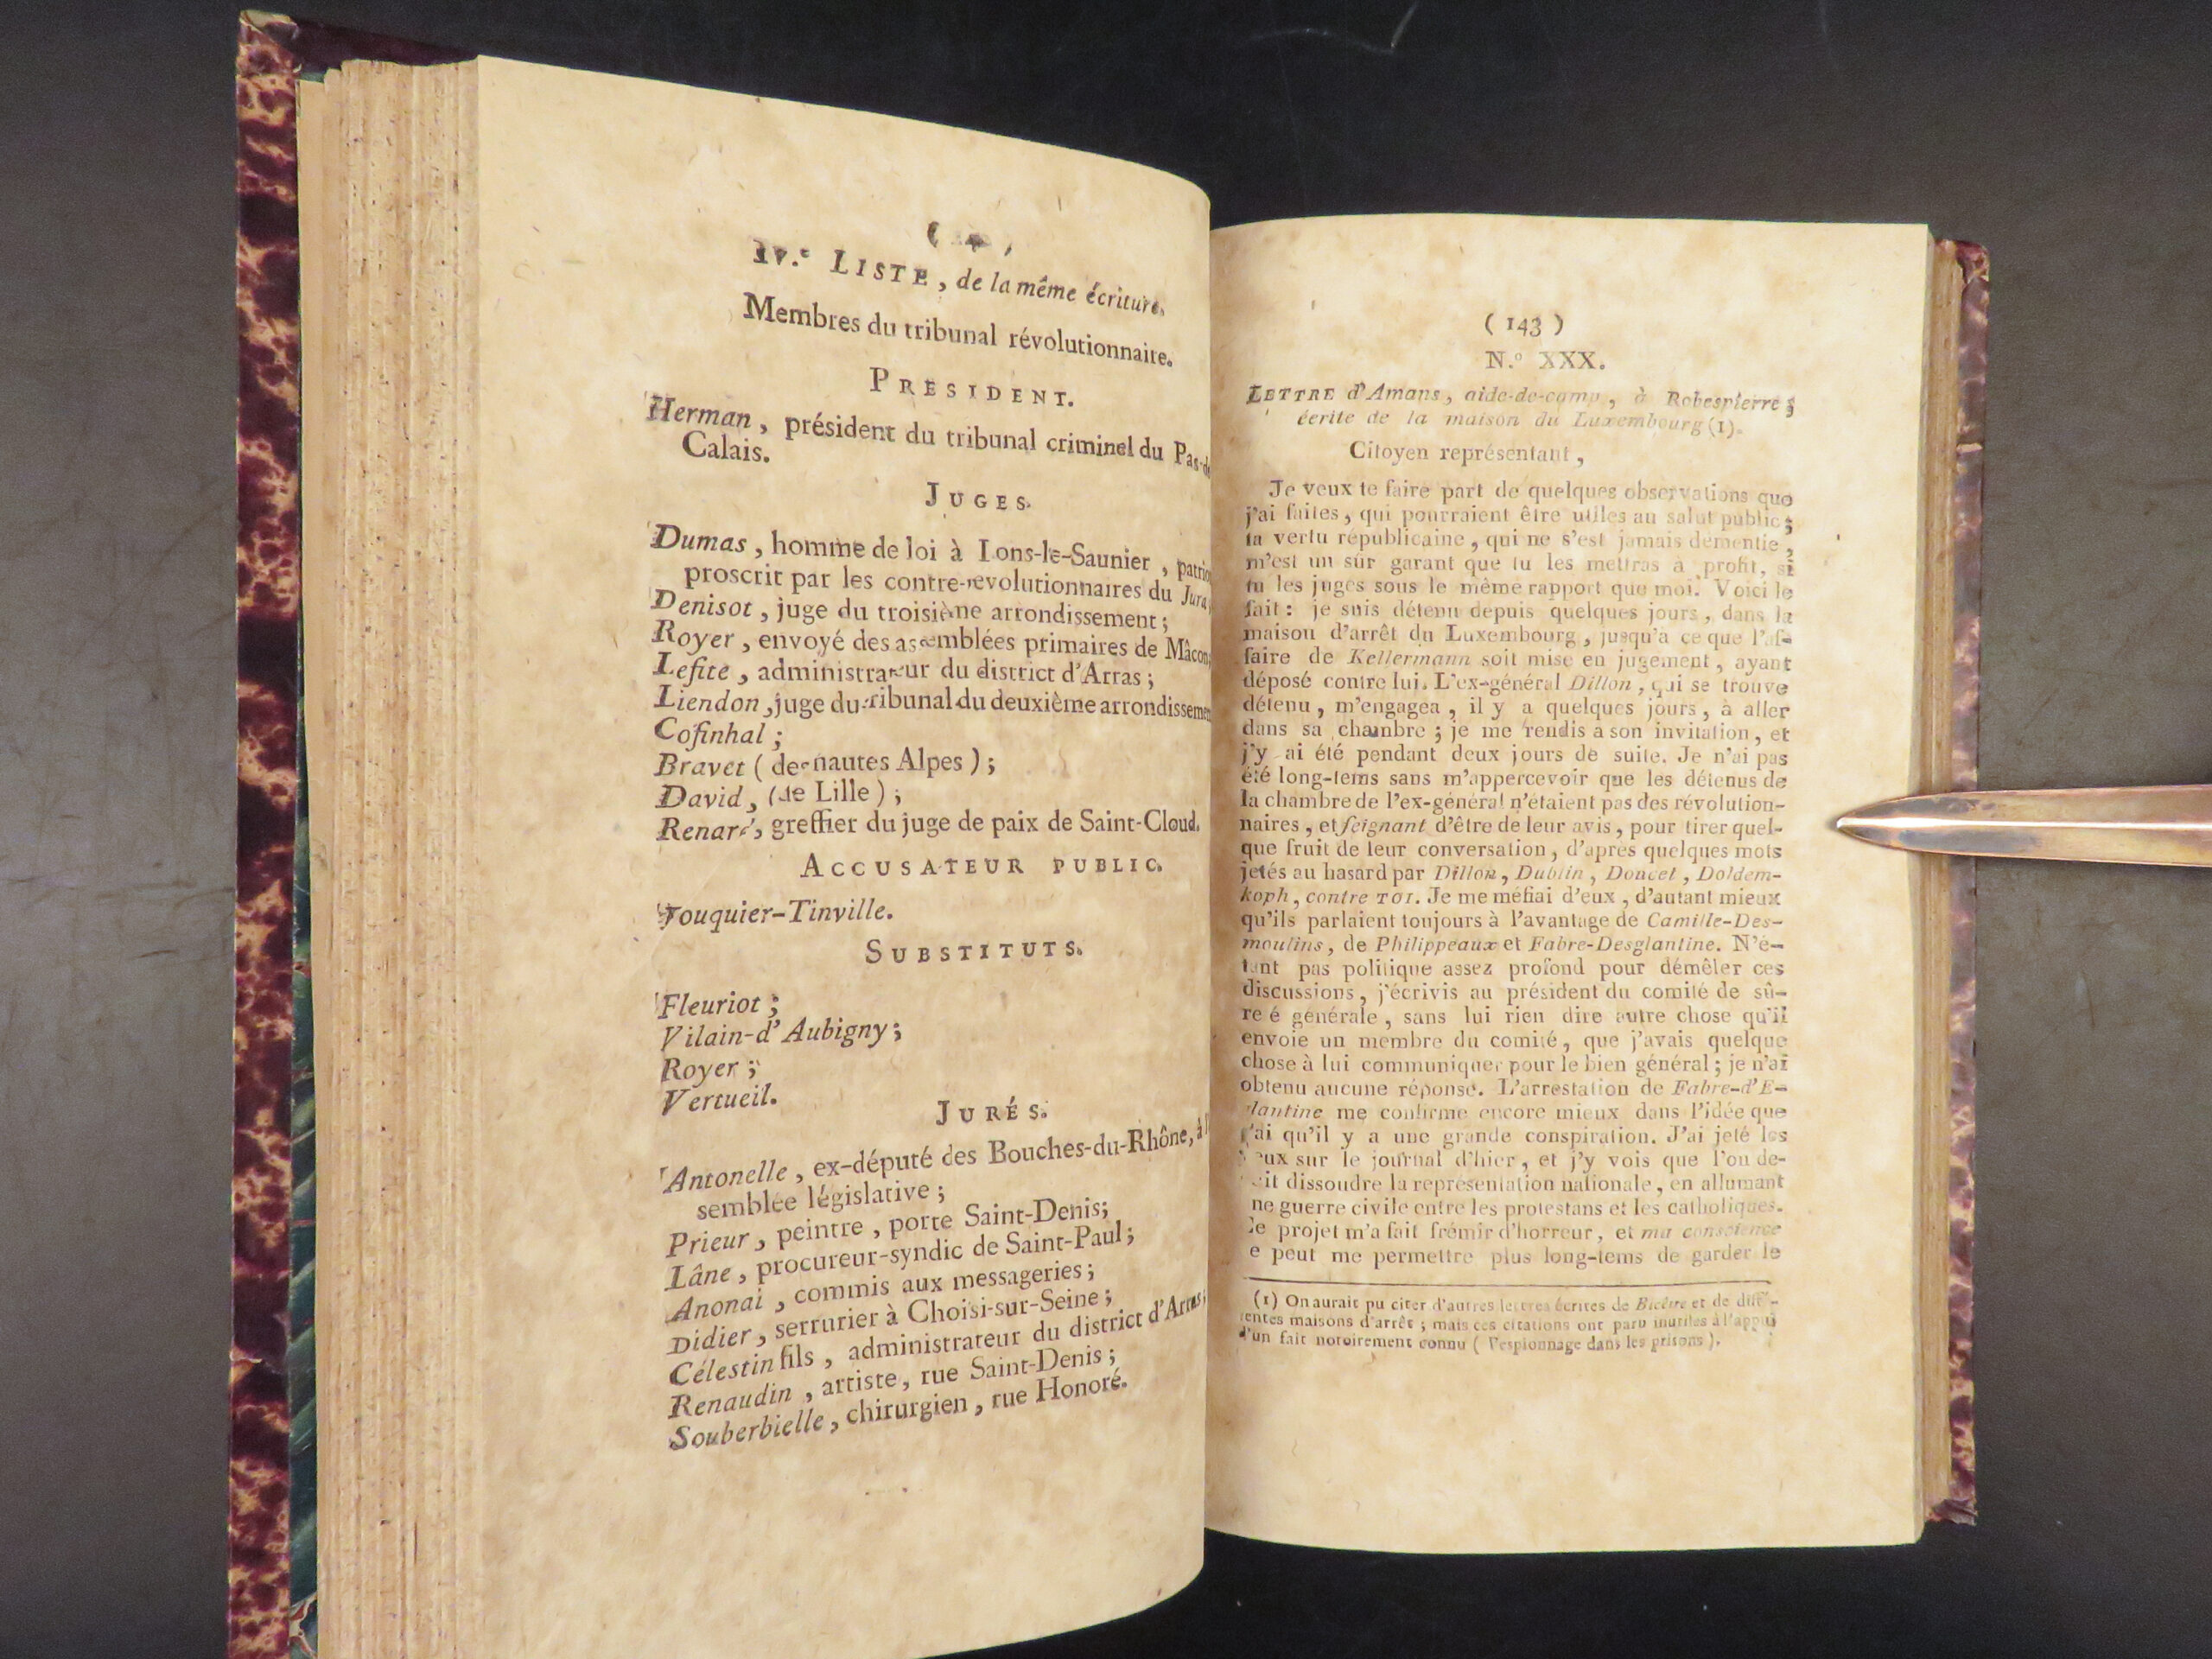 IV.e LISTE, de la même écriture.
Membres du tribunal révolutionnaire.
PRESIDENT.
Herman, président du tribunal criminel du Pas-de
Calais.
JUGES.
Dumas, homme de loi à Lons-le-Saunier, patrio
proscrit par les contre-révolutionnaires du Jura,
Denisot, juge du troisième arrondissement;
Royer, envoyé des assemblées primaires de Mâcon,
Lefite, administrateur du district d'Arras;
Liendon, juge du tribunal du deuxième arrondissemen
Cofinhal;
Bravet (des hautes Alpes);
David, (de Lille);
Renard, greffier du juge de paix de Saint-Cloud.
ACCUSATEUR PUBLIC.
Fouquier-Tinville.
SUBSTITUTS.
Fleuriot;
Vilain-d'Aubigny;
Royer;
Verteuil.
JURÉS.
Antonelle, ex-député des Bouches-du-Rhône, à l
semblée législative;
Prieur, peintre, porte Saint-Denis;
Lâne, procureur-syndic de Saint-Paul;
Anonai, commis aux messageries;
Didier, serrurier à Choisi-sur-Seine;
Célestin fils, administrateur du district d'Arras;
Renaudin, artiste, rue Saint-Denis;
Souberbielle, chirurgien, rue Honoré.
(143)
N.o XXX.
LETTRE d'Amans, aide-de-camp, à Robespierre;
écrite de la maison du Luxembourg (1).
Citoyen représentant,
Je veux te faire part de quelques observations que
j'ai faites, qui pourraient être utiles au salut public;
ta vertu républicaine, qui ne s'est jamais démentie,
m'est un sûr garant que tu les mettras à profit, si
tu les juges sous le même rapport que moi. Voici le
fait: je suis détenu depuis quelques jours, dans la
maison d'arrêt du Luxembourg, jusqu'à ce que l'af-
faire de Kellermann soit mise en jugement, ayant
déposé contre lui. L'ex-général Dillon, qui se trouve
détenu, m'engagea, il y a quelques jours, à aller
dans sa chambre; je me rendis à son invitation, et
j'y ai été pendant deux jours de suite. Je n'ai pas
été long-tems sans m'appercevoir que les détenus de
la chambre de l'ex-général n'étaient pas des révolution-
naires, et feignant d'être de leur avis, pour tirer quel-
que fruit de leur conversation, d'après quelques mots
jetés au hasard par Dillon, Dublin, Doucet, Doldem-
koph, contre TOI. Je me méfiai d'eux, d'autant mieux
qu'ils parlaient toujours à l'avantage de Camille-Des-
moulins, de Philippeaux et Fabre-Desglantine. N'é-
tant pas politique assez profond pour démêler ces
discussions, j'écrivis au président du comité de sû-
reté générale, sans lui rien dire autre chose qu'il
envoie un membre du comité, que j'avais quelque
chose à lui communiquer pour le bien général; je n'ai
obtenu aucune réponse. L'arrestation de Fabre-d'E-
glantine me confirme encore mieux dans l'idée que
j'ai qu'il y a une grande conspiration. J'ai jeté les
yeux sur le journal d'hier, et j'y vois que l'on de-
vait dissoudre la représentation nationale, en allumant
ne guerre civile entre les protestans et les catholiques.
Ce projet m'a fait frémir d'horreur, et ma conscience
e peut me permettre plus long-tems de garder le
(1) On aurait pu citer d'autres lettres écrites de Bicêtre et de diffé-
rentes maisons d'arrêt; mais ces citations ont paru inutiles à l'appui
d'un fait notoirement connu (l'espionnage dans les prisons).